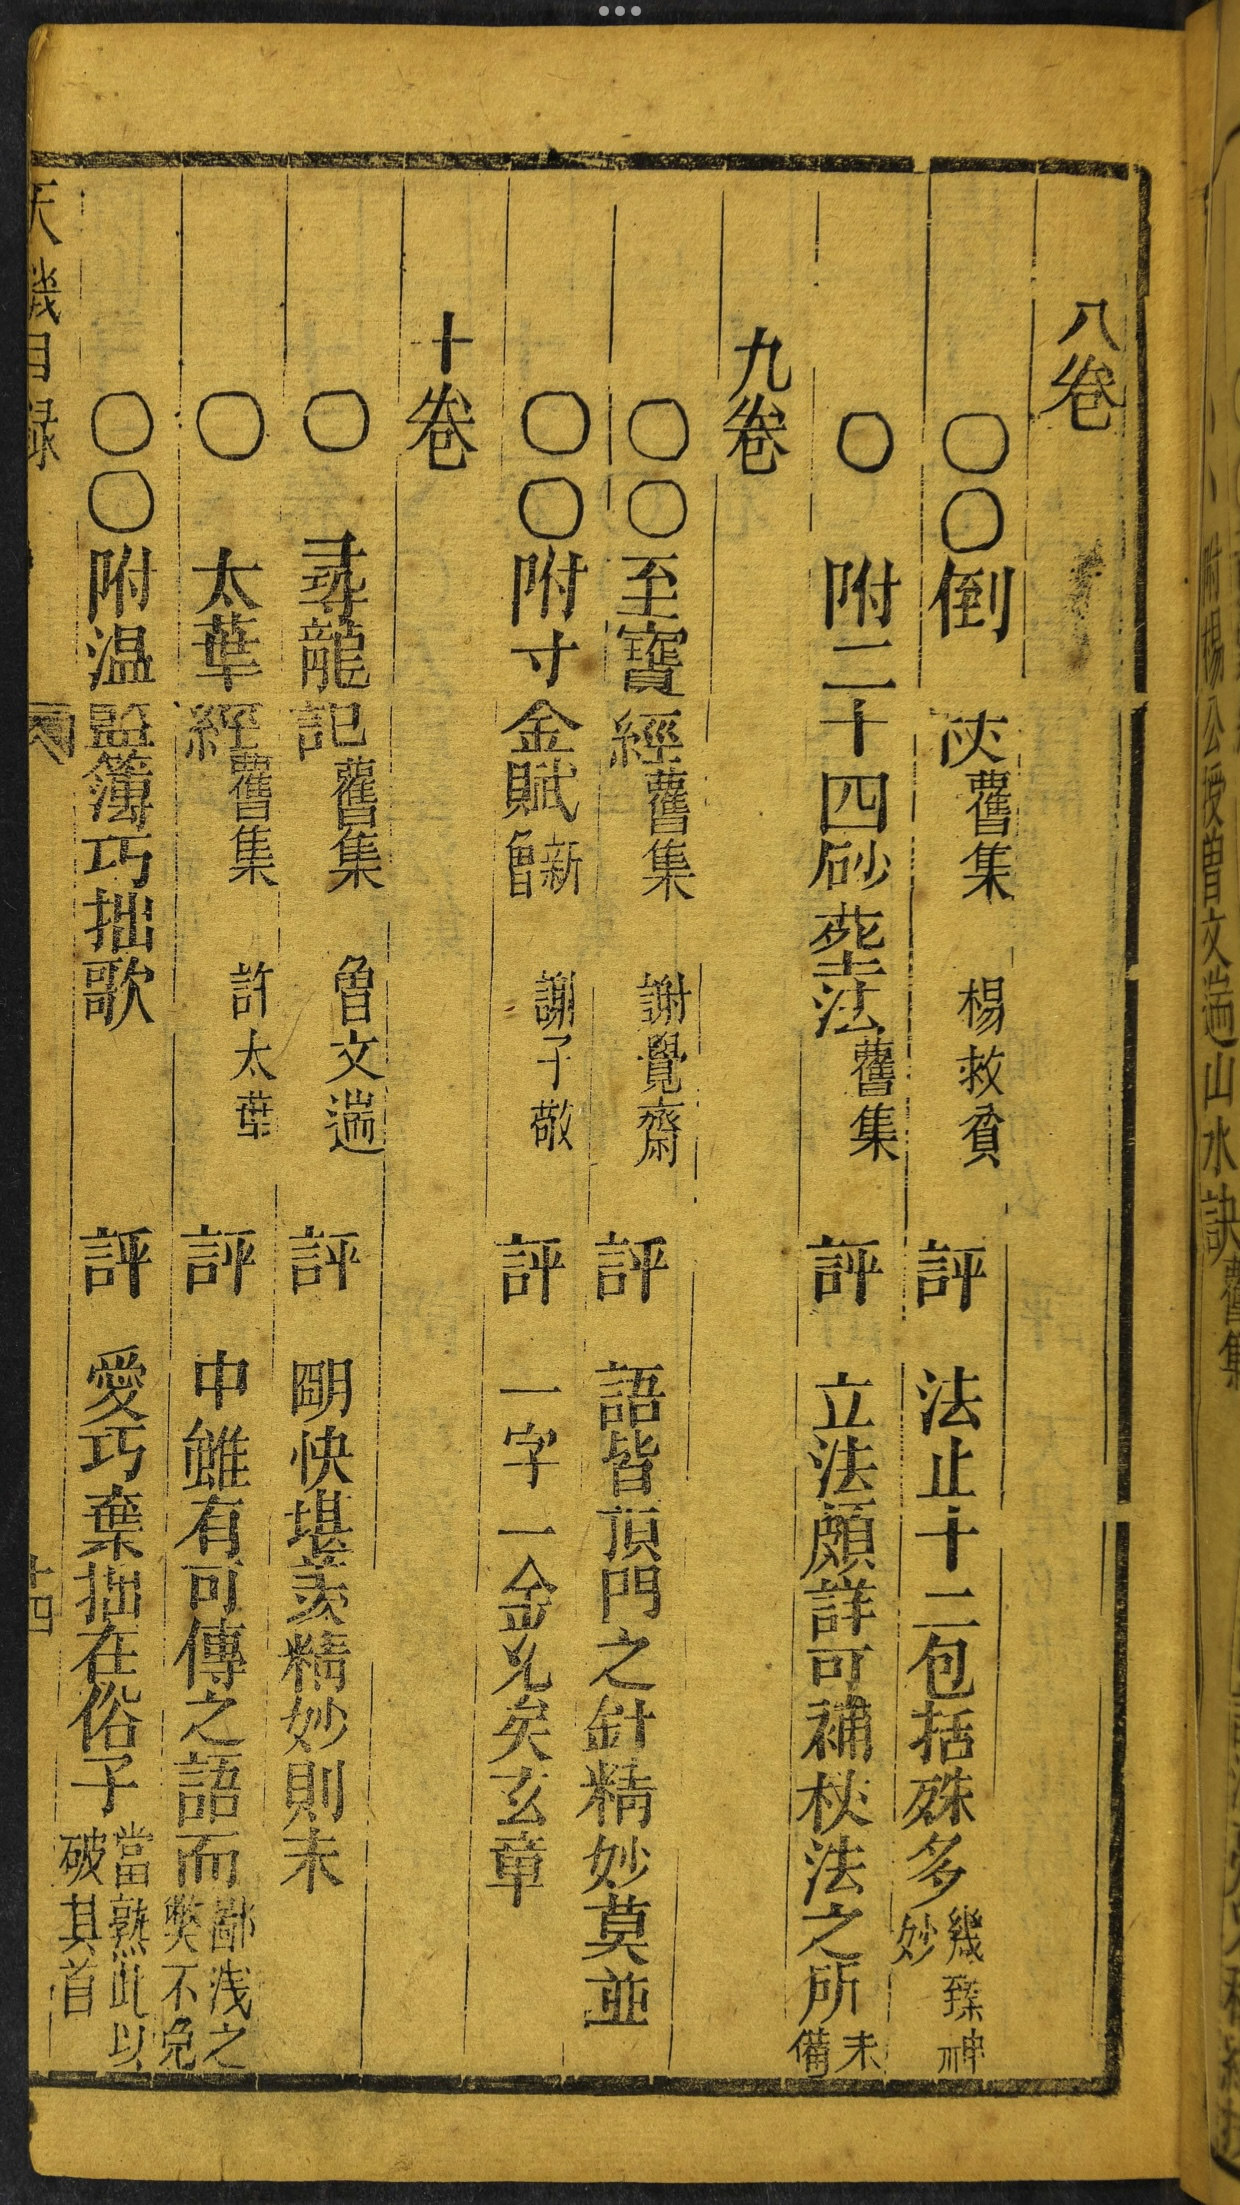 八卷
〇〇倒 㳄舊集 楊救貧 評 法止十二包括殊多幾臻神妙
〇 附二十四砂葬法舊集 評 立法頗詳可補杖法之所未備
九卷
〇〇至寶經舊集 謝覺齋 評 語皆頂門之針精妙莫並
〇〇附寸金賦新 謝子敬 評 一字一金允矣玄章
十卷
〇 尋龍記舊集 曾文遄 評 明快堪羨精妙則未
〇 太華經舊集 許太華 評 中雖有可傳之語而鄙淺之弊不免
〇〇附温監簿巧拙歌 評 愛巧棄拙在俗子當熟此以破其首
天機目錄
十四
附楊公授曾文遄山水訣舊集